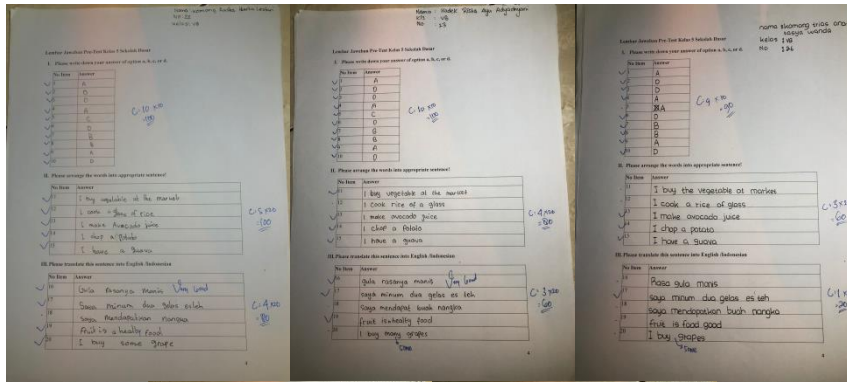 No: 22
Kelas: VB
Lembar Jawaban Pre-Test Kelas 5 Sekolah Dasar
I. Please write down your answer of option a, b, c, or d.
No Item Answer
1 A
2 D
3 D
4 A
5 C
6 D
7 B
8 B
9 A
10 D
C: 10 x10
=100
II. Please arrange the words into appropriate sentence!
No Item Answer
11 I buy vegetable at the market
12 I cook a glass of rice
13 I make Avocado juice
14 I chop a Potato
15 I have a guava
C: 5 x20
=100
III. Please translate this sentence into English /Indonesian
No Item Answer
16 Gula rasanya manis Very Good
17 Saya minum dua gelas es teh
18 saya mendapatkan nangka
19 fruit is a healty food
20 I buy some grape
C: 4 x20
=80
Nama: Kadek Siska Ayu
Kls: VB
No: 23
Lembar Jawaban Pre-Test Kelas 5 Sekolah Dasar
I. Please write down your answer of option a, b, c, or d.
No Item Answer
1 A
2 D
3 D
4 A
5 C
6 D
7 B
8 B
9 A
10 D
C: 10 x10
=100
II. Please arrange the words into appropriate sentence!
No Item Answer
11 I buy vegetable at the market
12 I cook rice of a glass
13 I make avocado juice
14 I chop a Potato
15 I have a guava
C: 4 x20
=80
III. Please translate this sentence into English /Indonesian
No Item Answer
16 gula rasanya manis Very Good
17 saya minum dua gelas es teh
18 saya mendapat buah nangka
19 fruit is healty food
20 I buy many grapes
some
C: 3 x20
=60
nama: komang trias
sasya wanda
kelas: VB
No: 24
Lembar Jawaban Pre-Test Kelas 5 Sekolah Dasar
I. Please write down your answer of option a, b, c, or d.
No Item Answer
1 A
2 D
3 D
4 A
5 A
6 D
7 B
8 B
9 A
10 D
C: 9 x10
=90
II. Please arrange the words into appropriate sentence!
No Item Answer
11 I buy the vegetable at market
12 I cook a rice of glass
13 I make avocado juice
14 I chop a potato
15 I have a guava
C: 3 x20
=60
III. Please translate this sentence into English /Indonesian
No Item Answer
16 Rasa gula manis
17 saya minum dua gelas es teh
18 saya mendapatkan buah nangka
19 fruit is food good
20 I buy grapes
some
C: 1 x20
=20